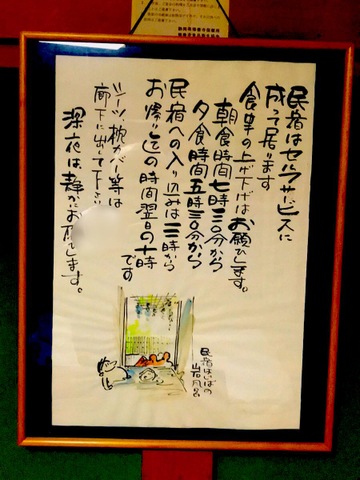 民宿はセルフサービスに
成って居ります
食事の上げ下げはお願ひします。
朝食時間七時三〇分から
夕食時間五時三〇分から
民宿への入り込みは三時から
お帰り迄の時間翌日の十時
です
シーツ、枕カバー等は
廊下に出して下さい
深夜は静かにお願いします。
民宿はしばの
岩風呂